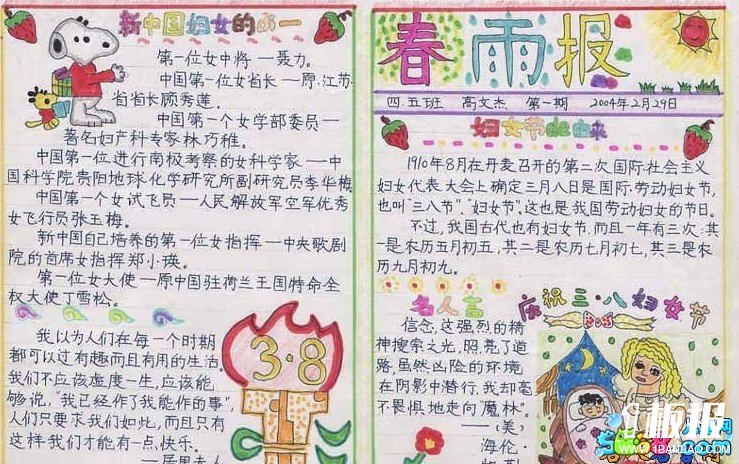 新中国妇女的第一
第一位女中将——聂力。
中国第一位女省长——原·江苏
省省长顾秀莲。
中国第一个女学部委员—
著名妇产科专家林巧稚。
中国第一位进行南极考察的女科学家——中
国科学院贵阳地球化学研究所副研究员李华梅
中国第一个女试飞员——人民解放军空军优秀
女飞行员张玉梅。
新中国自己培养的第一位女指挥——中央歌剧
院的首席女指挥郑小瑛。
第一位女大使——原中国驻荷兰王国特命全
权大使丁雪松。
我以为人们在每一个时期
都可以过有趣而且有用的生活。
我们不应该虚度一生,应该能
够说,"我已经作了我能作的事",
人们只要求我们如此,而且只有
这样我们才能有一点快乐。
——居里夫人
3·8
春雨报
四.五班 高文杰 第一期 2004年2月29日
妇女节的由来
1910年8月在丹麦召开的第二次国际社会主义
妇女代表大会上确定三月八日是国际劳动妇女节,
也叫"三八节""妇女节"。这也是我国劳动妇女的节日。
不过,我国古代也有妇女节,而且一年有三次:其
一是农历五月初五,其二是农历七月初七,其三是农
历九月初九。
名人言
信念,这强烈的精
神搜索之光,照亮了道
路,虽然凶险的环境
在阴影中潜行,我却毫
不畏惧地走向魔林"。
——(美)
海伦·
庆祝三·八妇女节
板报网
WWW.1BANBAO.COM